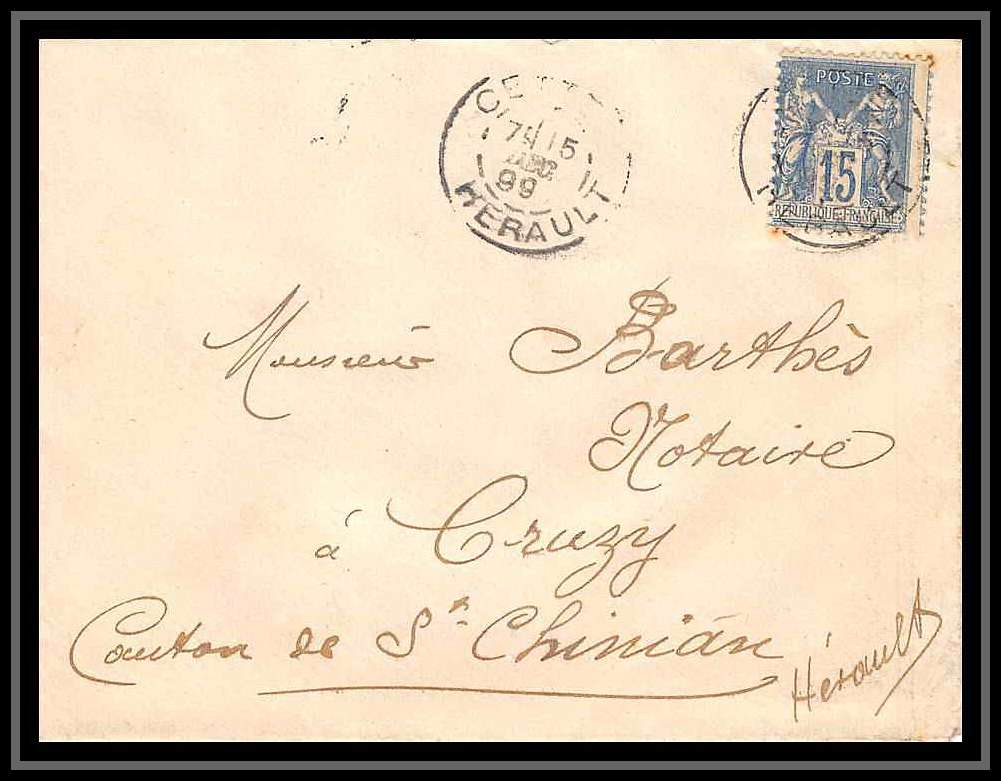 POSTE
15
REPUBLIQUE FRANÇAISE
CETTE
15
99
HERAULT
Monsieur Barthès
Notaire
à Cruzy
Canton de St Chinian
Hérault